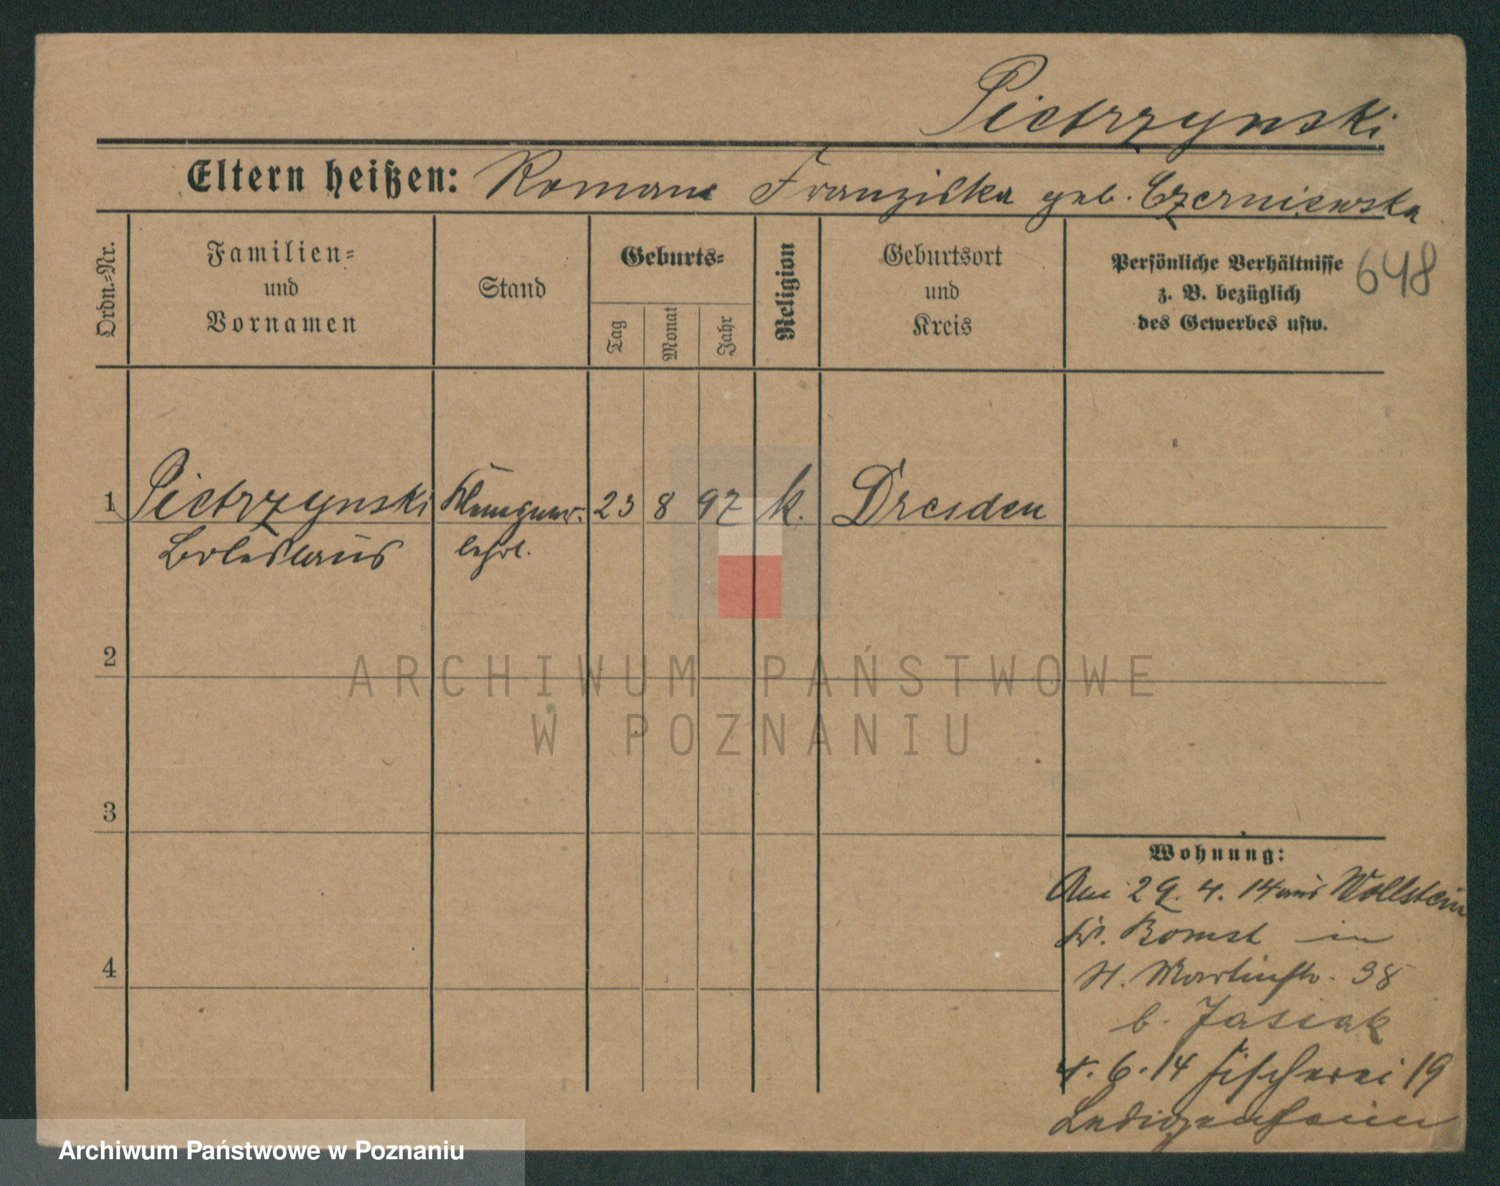 Pietrzynski
Eltern heißen: Roman Franziska geb. Czerniewska
648
Ordn.-Nr.
Familien-
und
Vornamen
Stand
Geburts-
Tag
Monat
Jahr
Religion
Geburtsort
und
Kreis
Persönliche Verhältnisse
z. B. bezüglich
des Gewerbes usw.
1 Pietrzynski Klempner- 23 8 97 k. Dresden
Boleslaus lehrl.
2
3
4
ARCHIWUM PAŃSTWOWE
W POZNANIU
Wohnung:
Am 29. 4. 14 aus Wollstein
Kr. Bomst in
St. Martinstr. 38
b. Jasiak
4. 6. 14 Fischerei 19
Ledigenheim
Archiwum Państwowe w Poznaniu